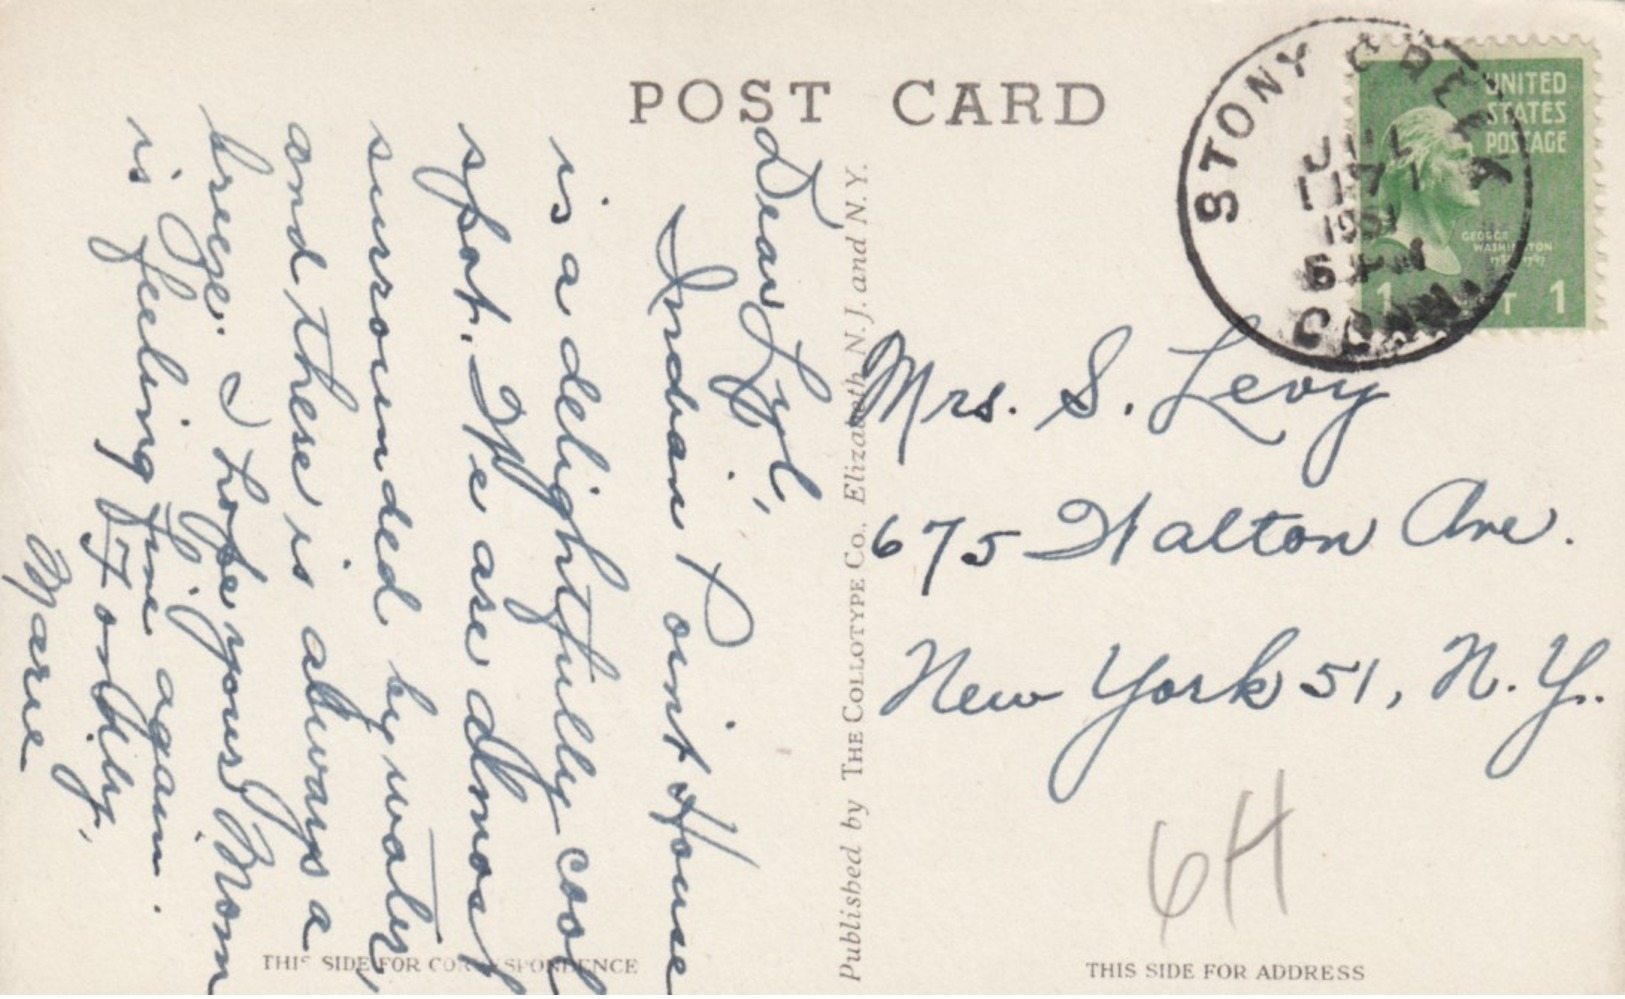 POST CARD
Dear Syl,
Indian Point House
is a delightfully cool
spot. We are almost
surrounded by water,
and there is always a
breeze. I hope your Mom
is feeling fine again.
Marie
Published by THE COLLOTYPE Co., Elizabeth, N. J. and N. Y.
STONY CREEK
JUL
1951
6 PM
CONN.
UNITED
STATES
POSTAGE
GEORGE
WASHINGTON
1 T 1
Mrs. S. Levy
675 Walton Ave.
New York 51, N.Y.
6H
THIS SIDE FOR CORRESPONDENCE
THIS SIDE FOR ADDRESS